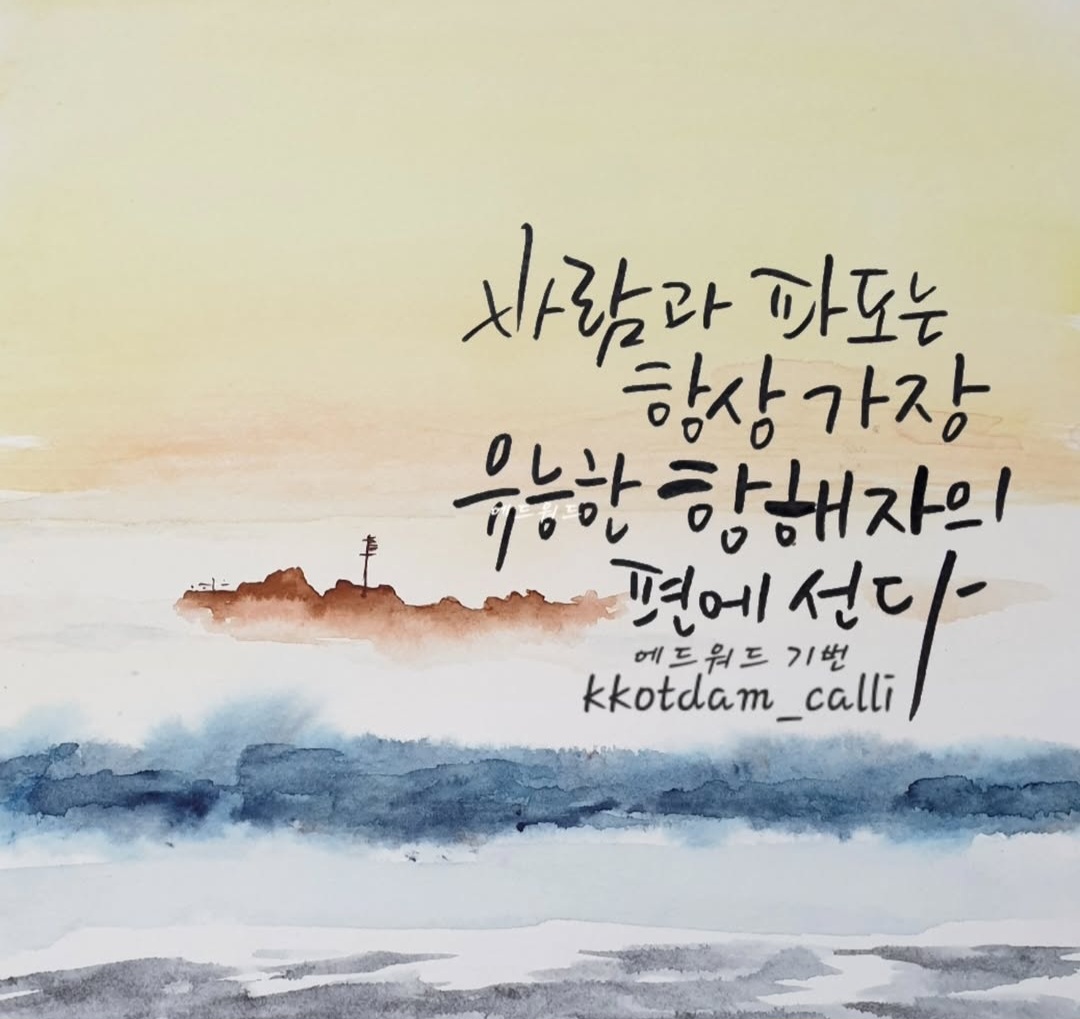 바람과 파도는
항상 가장
유능한 항해자의
편에 선다
에드워드 기번
kkotdam_calli
에드워드